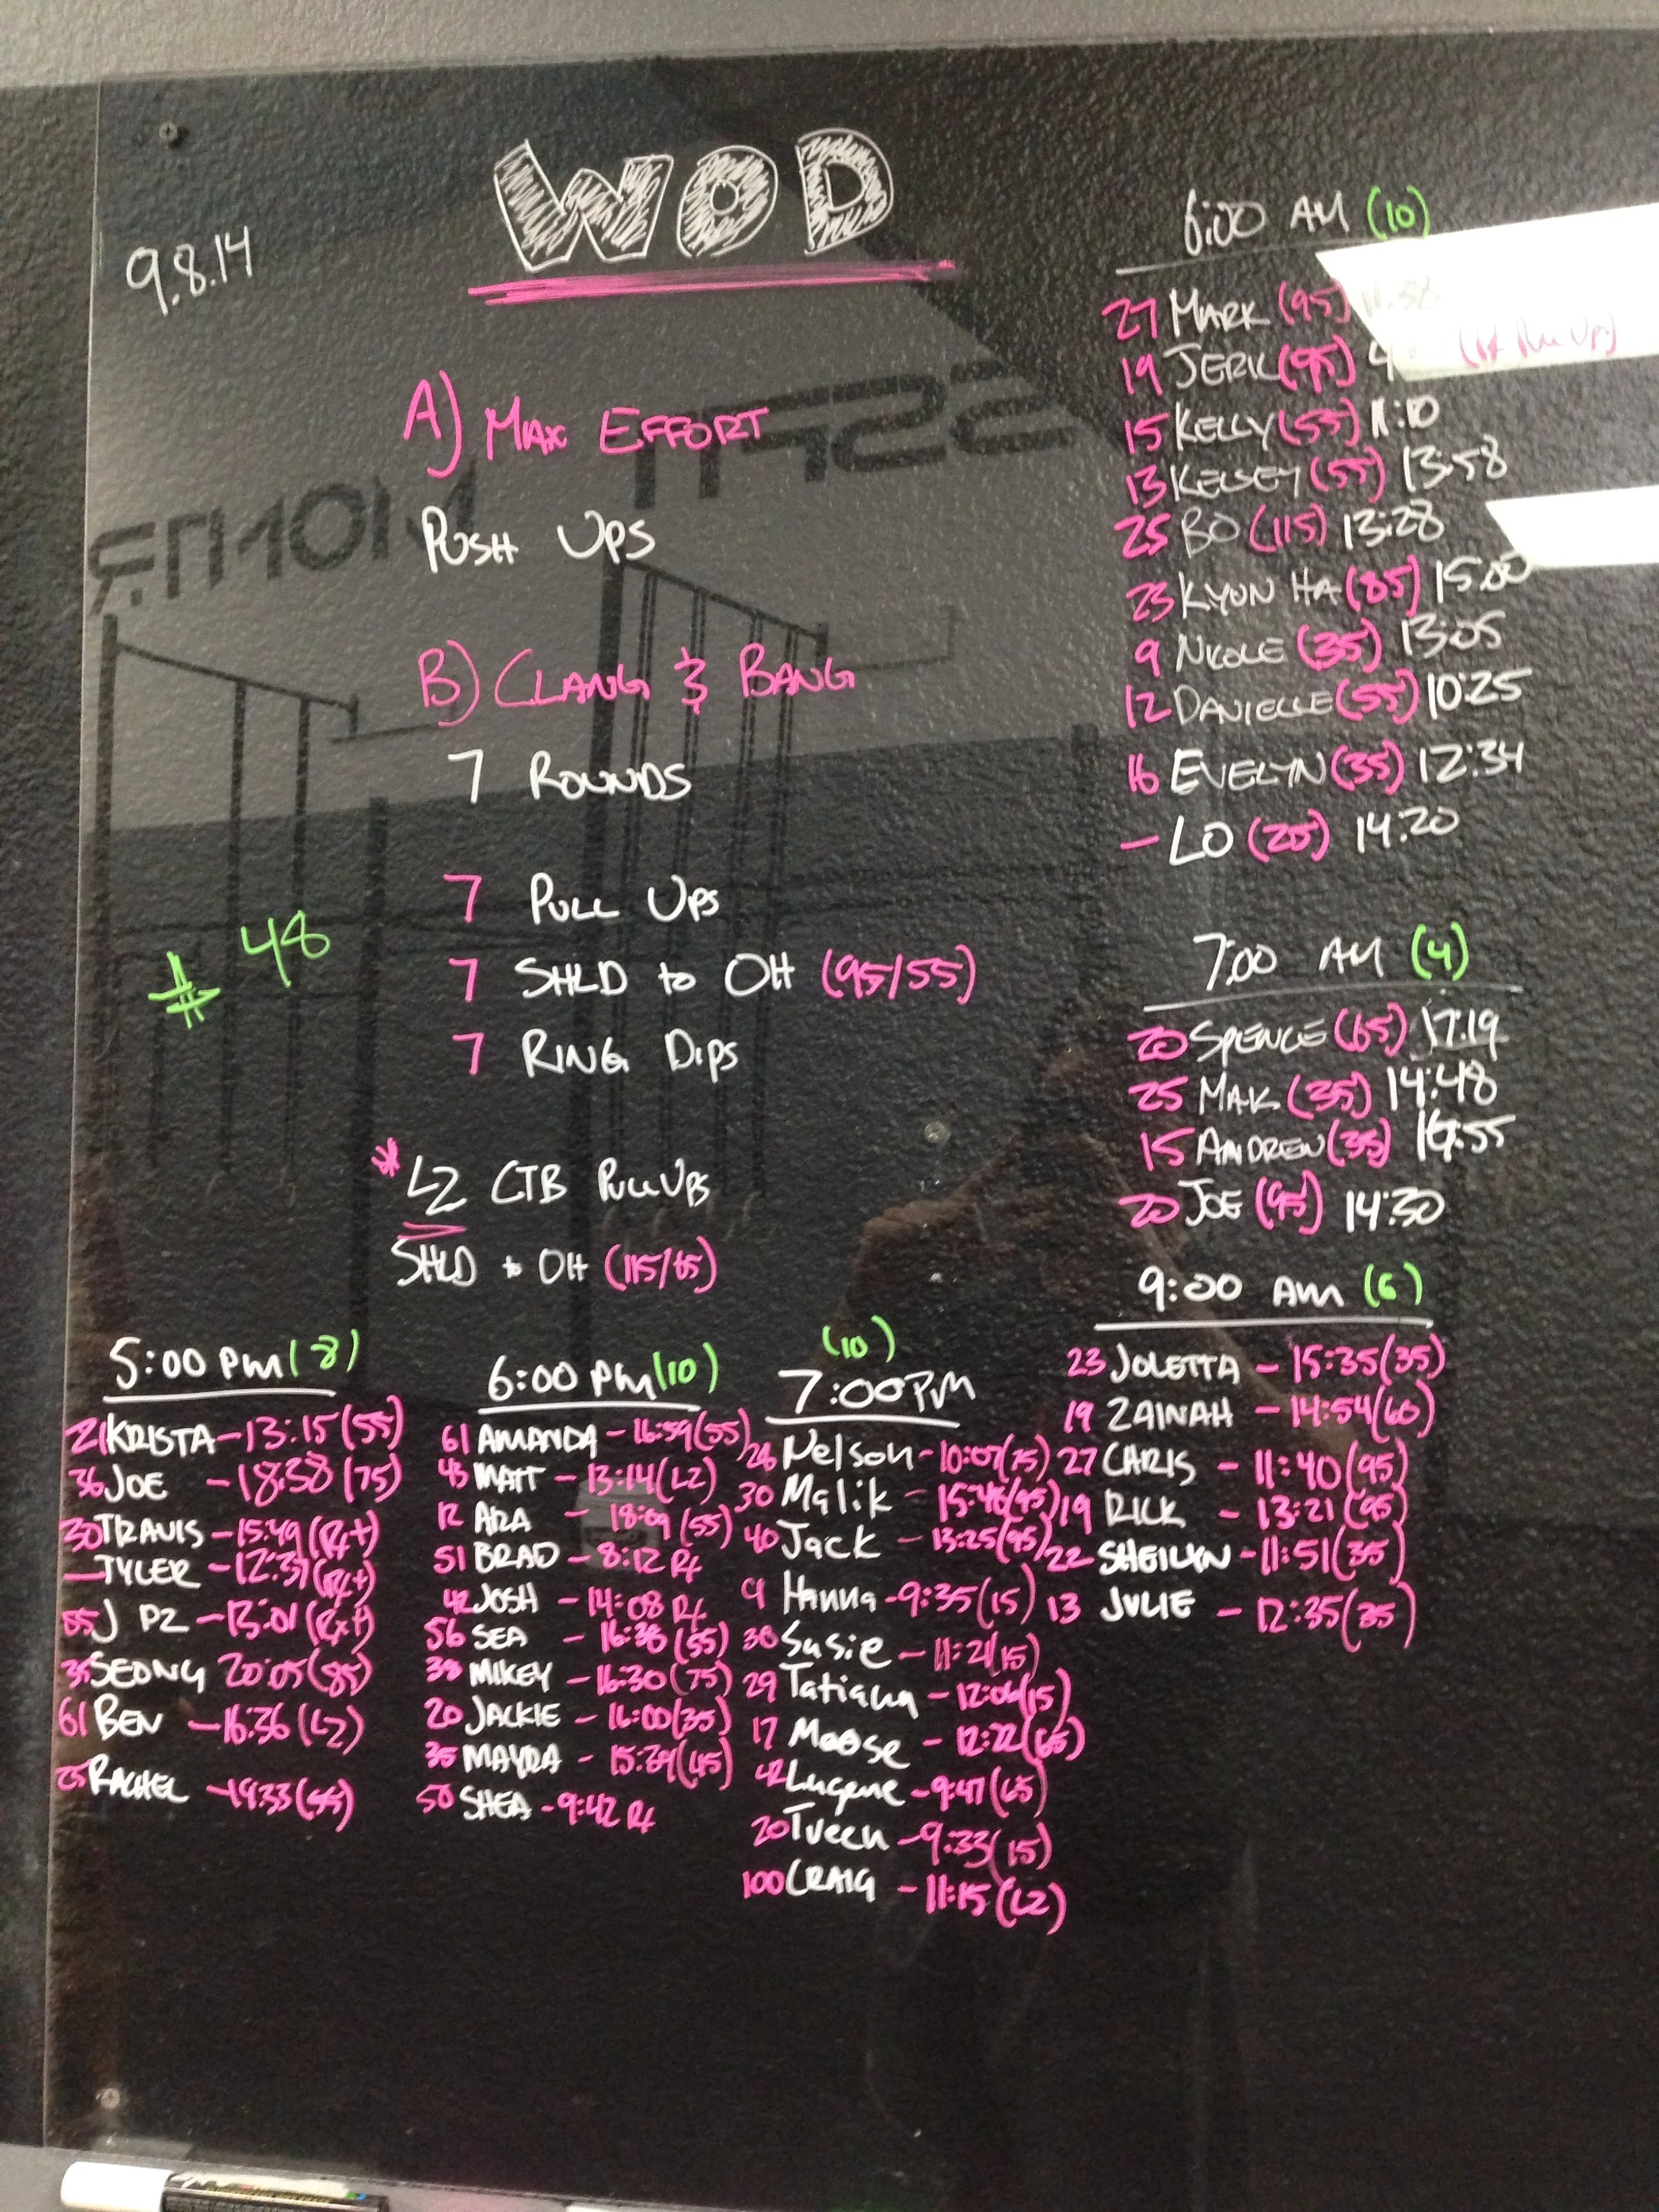 WOD
9.8.14
A) MAX EFFORT
PUSH UPS
B) CLANG & BANG
7 ROUNDS
7 PULL UPS
7 SHLD to OH (95/55)
7 RING DIPS
# 48
* L2 CTB PULL UPS
SHLD to OH (115/65)
6:00 AM (10)
27 MARK (95)
19 JERIC (95)
15 KELLY (55) 11:10
13 KELSEY (55) 13:58
25 BO (115) 13:28
23 KYUN HA (85) 15:00
9 NICOLE (35) 13:05
12 DANIELLE (55) 10:25
16 EVELYN (35) 12:34
- LO (25) 14:20
7:00 AM (4)
20 SPENCE (65) 17:19
25 MAK (35) 14:48
15 ANDREW (35)
20 JOE (95) 14:30
9:00 AM (6)
23 JOLETTA - 15:35 (35)
19 ZAINAH - 14:54 (60)
27 CHRIS - 11:40 (95)
19 RICK - 13:21 (95)
22 SHEILYN - 11:51 (35)
13 JULIE - 12:35 (35)
5:00 PM (8)
21 KRISTA - 13:15 (55)
36 JOE - 18:38 (75)
30 TRAVIS - 15:49 (Rx+)
- TYLER - 12:37 (Rx+)
55 J PZ - 13:01 (Rx+)
35 SEONG 20:05 (85)
61 BEN - 16:36 (L2)
25 RACHEL - 19:33 (55)
6:00 PM (10)
61 AMANDA - 16:59 (55)
43 MATT - 13:14 (L2)
12 ARA - 18:09 (55)
51 BRAD - 8:12 Rx
42 JOSH - 14:08 Rx
56 SEA - 16:36 (55)
MIKEY - 16:30 (75)
20 JACKIE - 16:00 (35)
35 MAYRA - 15:39 (45)
50 SHEA - 9:42 Rx
(10)
7:00 PM
Nelson - 10:07 (75)
30 Malik - 15:46 (95)
40 Jack - 13:25 (95)
9 Hanna - 9:35 (15)
Susie - 11:21 (15)
29 Tatiana - 12:06 (15)
17 Moose - 12:22 (65)
42 Lugene - 9:47 (65)
20 Tveen - 9:33 (15)
100 CRAIG - 11:15 (L2)